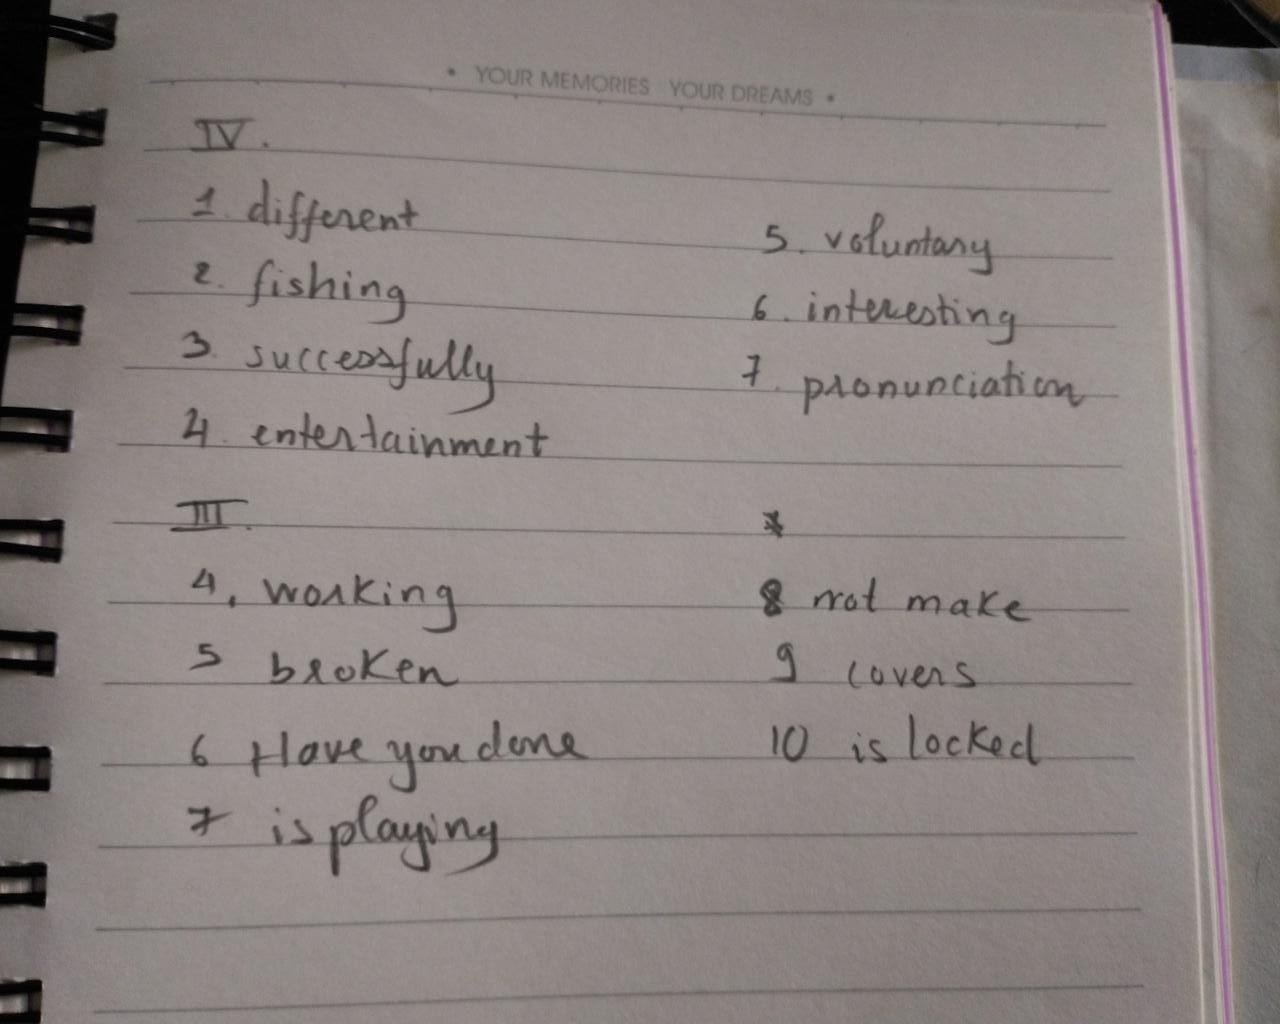 • YOUR MEMORIES YOUR DREAMS •
IV.
1. different
2. fishing
3. successfully
4. entertainment
5. voluntary
6. interesting
7. pronunciation
III.
4. working
5 broken
6 Have you done
7 is playing
8 not make
9 covers
10 is locked